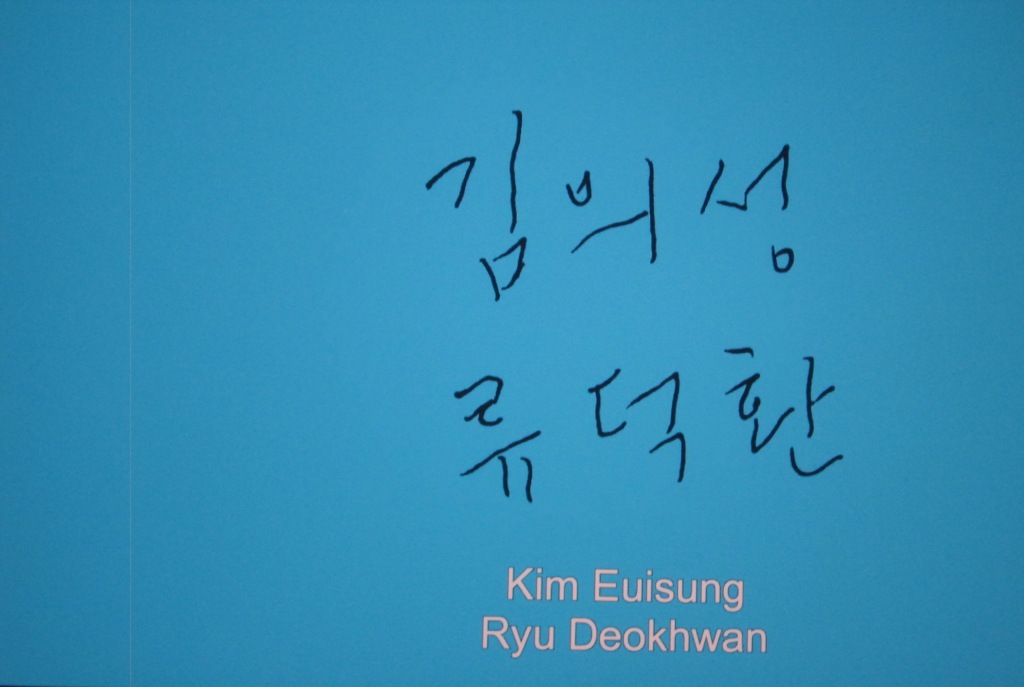 김의성
류덕환
Kim Euisung
Ryu Deokhwan